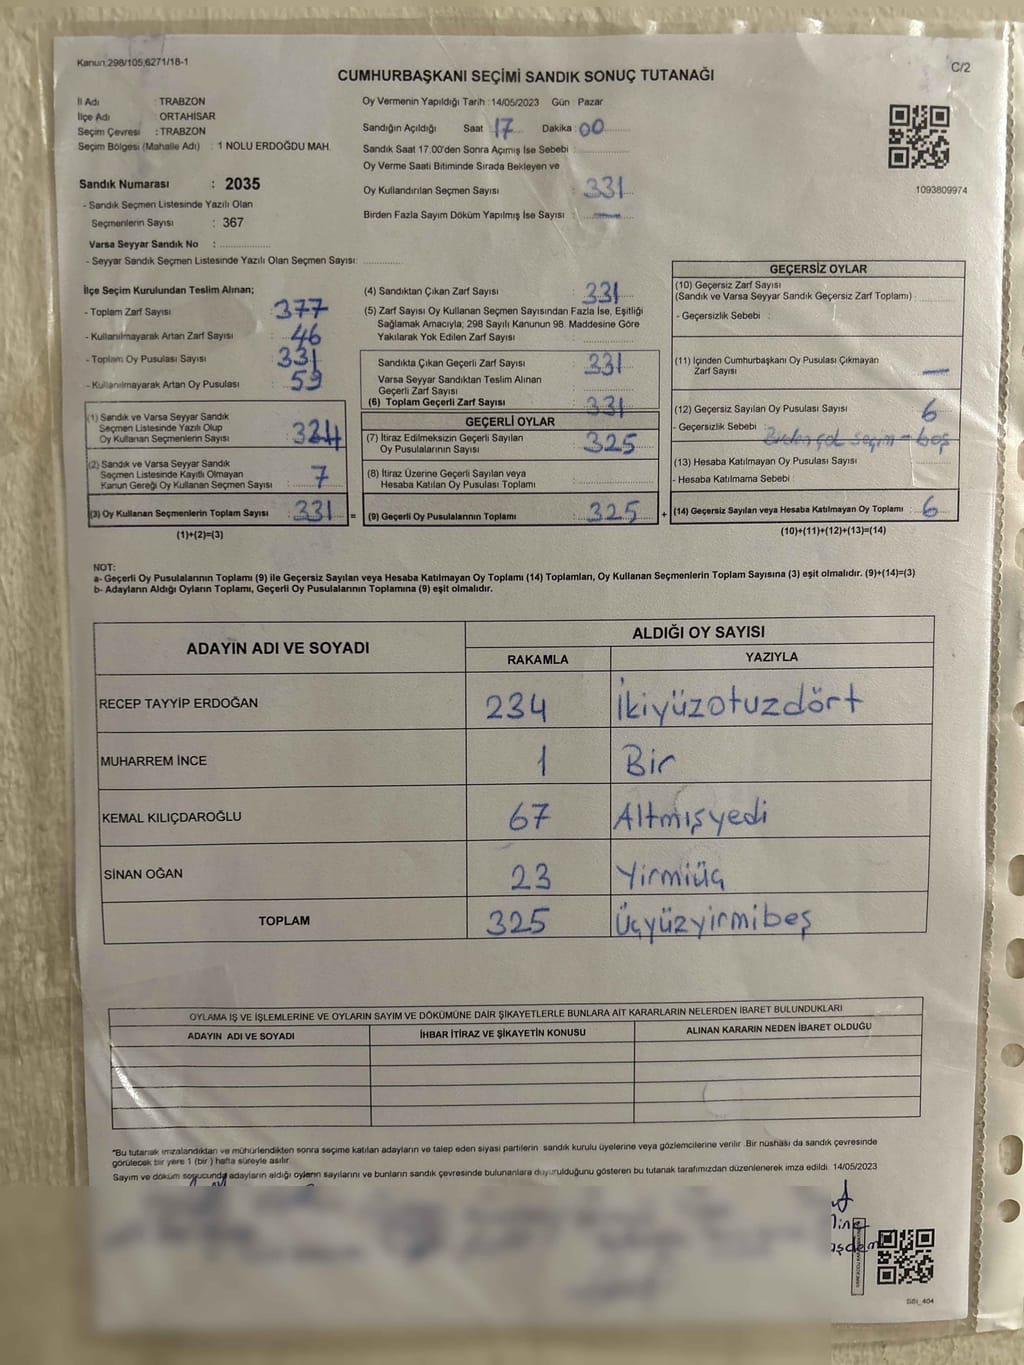 Kanun:298/105,6271/18-1
C/2
CUMHURBAŞKANI SEÇİMİ SANDIK SONUÇ TUTANAĞI
İl Adı : TRABZON
İlçe Adı : ORTAHİSAR
Seçim Çevresi : TRABZON
Seçim Bölgesi (Mahalle Adı) : 1 NOLU ERDOĞDU MAH.
Sandık Numarası : 2035
- Sandık Seçmen Listesinde Yazılı Olan
Seçmenlerin Sayısı : 367
Varsa Seyyar Sandık No :
- Seyyar Sandık Seçmen Listesinde Yazılı Olan Seçmen Sayısı:
Oy Vermenin Yapıldığı Tarih :14/05/2023 Gün : Pazar
Sandığın Açıldığı Saat : 17 Dakika : 00
Sandık Saat 17:00'den Sonra Açımış İse Sebebi :
Oy Verme Saati Bitiminde Sırada Bekleyen ve
Oy Kullandırılan Seçmen Sayısı : 331
Birden Fazla Sayım Döküm Yapılmış İse Sayısı : —
1093809974
İlçe Seçim Kurulundan Teslim Alınan;
- Toplam Zarf Sayısı : 377
- Kullanılmayarak Artan Zarf Sayısı : 46
- Toplam Oy Pusulası Sayısı : 331
- Kullanılmayarak Artan Oy Pusulası : 59
(1) Sandık ve Varsa Seyyar Sandık
Seçmen Listesinde Yazılı Olup
Oy Kullanan Seçmenlerin Sayısı : 324
(2) Sandık ve Varsa Seyyar Sandık
Seçmen Listesinde Kayıtlı Olmayan
Kanun Gereği Oy Kullanan Seçmen Sayısı : 7
(3) Oy Kullanan Seçmenlerin Toplam Sayısı : 331 =
(1)+(2)=(3)
(4) Sandıktan Çıkan Zarf Sayısı : 331
(5) Zarf Sayısı Oy Kullanan Seçmen Sayısından Fazla İse, Eşitliği
Sağlamak Amacıyla; 298 Sayılı Kanunun 98. Maddesine Göre
Yakılarak Yok Edilen Zarf Sayısı :
Sandıkta Çıkan Geçerli Zarf Sayısı : 331
Varsa Seyyar Sandıktan Teslim Alınan
Geçerli Zarf Sayısı :
(6) Toplam Geçerli Zarf Sayısı : 331
GEÇERLİ OYLAR
(7) İtiraz Edilmeksizin Geçerli Sayılan
Oy Pusulalarının Sayısı : 325
(8) İtiraz Üzerine Geçerli Sayılan veya
Hesaba Katılan Oy Pusulası Toplamı :
(9) Geçerli Oy Pusulalarının Toplamı : 325 +
GEÇERSİZ OYLAR
(10) Geçersiz Zarf Sayısı
(Sandık ve Varsa Seyyar Sandık Geçersiz Zarf Toplamı) :
- Geçersizlik Sebebi :
(11) İçinden Cumhurbaşkanı Oy Pusulası Çıkmayan
Zarf Sayısı : —
(12) Geçersiz Sayılan Oy Pusulası Sayısı : 6
- Geçersizlik Sebebi : seçim - boş
(13) Hesaba Katılmayan Oy Pusulası Sayısı :
- Hesaba Katılmama Sebebi :
(14) Geçersiz Sayılan veya Hesaba Katılmayan Oy Toplamı : 6
(10)+(11)+(12)+(13)=(14)
NOT:
a- Geçerli Oy Pusulalarının Toplamı (9) ile Geçersiz Sayılan veya Hesaba Katılmayan Oy Toplamı (14) Toplamları, Oy Kullanan Seçmenlerin Toplam Sayısına (3) eşit olmalıdır. (9)+(14)=(3)
b- Adayların Aldığı Oyların Toplamı, Geçerli Oy Pusulalarının Toplamına (9) eşit olmalıdır.
ADAYIN ADI VE SOYADI
ALDIĞI OY SAYISI
RAKAMLA YAZIYLA
RECEP TAYYİP ERDOĞAN 234 İkiyüzotuzdört
MUHARREM İNCE 1 Bir
KEMAL KILIÇDAROĞLU 67 Altmışyedi
SİNAN OĞAN 23 Yirmiüç
TOPLAM 325 Üçyüzyirmibeş
OYLAMA İŞ VE İŞLEMLERİNE VE OYLARIN SAYIM VE DÖKÜMÜNE DAİR ŞİKAYETLERLE BUNLARA AİT KARARLARIN NELERDEN İBARET BULUNDUKLARI
ADAYIN ADI VE SOYADI İHBAR İTİRAZ VE ŞİKAYETİN KONUSU ALINAN KARARIN NEDEN İBARET OLDUĞU
*Bu tutanak imzalandıktan ve mühürlendikten sonra seçime katılan adayların ve talep eden siyasi partilerin sandık kurulu üyelerine veya gözlemcilerine verilir .Bir nüshası da sandık çevresinde
görülecek bir yere 1 (bir ) hafta süreyle asılır.
Sayım ve döküm sonucunda adayların aldığı oyların sayılarını ve bunların sandık çevresinde bulunanlara duyurulduğunu gösteren bu tutanak tarafımızdan düzenlenerek imza edildi. 14/05/2023